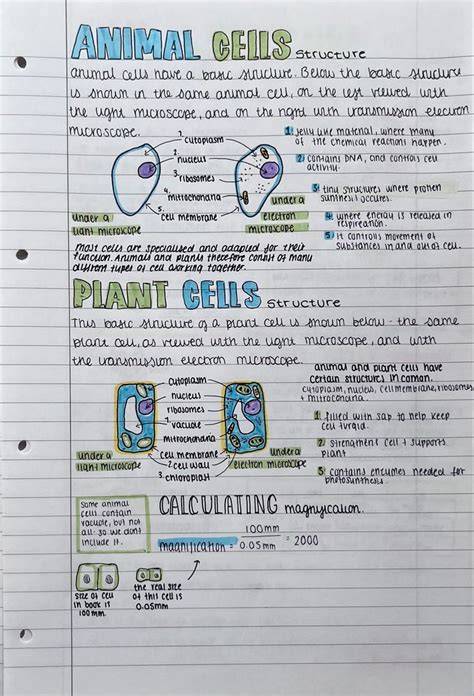 ANIMAL CELLS structure
animal cells have a basic structure. Below the basic structure
is shown in the same animal cell, on the left viewed with
the light microscope, and on the right with transmission electron
microscope.
1. cytoplasm
2. nucleus
3. ribosomes
4. mitochondria
5. cell membrane
under a
light microscope
under a
electron
microscope
1 jelly like material, where many
of the chemical reactions happen.
2 contains DNA, and controls cell
activity.
3 tiny structures where protien
synthesis occures.
4 where energy is released in
respireation.
5 it controls movement of
substances in and out of cell.
Most cells are specialised and adapted for their
function. Animals and plants therefore consist of many
different types of cell working together.
PLANT CELLS structure
This basic structure of a plant cell is shown below - the same
plant cell, as viewed with the light microscope, and with
the transmission electron microscope.
cytoplasm
nucleus
ribosomes
1 vacuole
mitochondria
cell membrane
2 cell wall
3 chloroplast
under a
light microscope
under a
electron microscope
animal and plant cells have
certain structures in coman.
cytoplasm, nucleus, cell membrane, ribosomes
+ mitocondria.
1 filled with sap to help keep
cell turgid.
2 strengthens cell + supports
plant
3 contains enzymes needed for
photosynthesis.
Some animal
cells contain
vacuole, but not
all- so we dont
include it.
CALCULATING magnification.
magnification = 100mm / 0.05mm = 2000
size of cell
in book is
100mm.
the real size
of this cell is
0.05mm